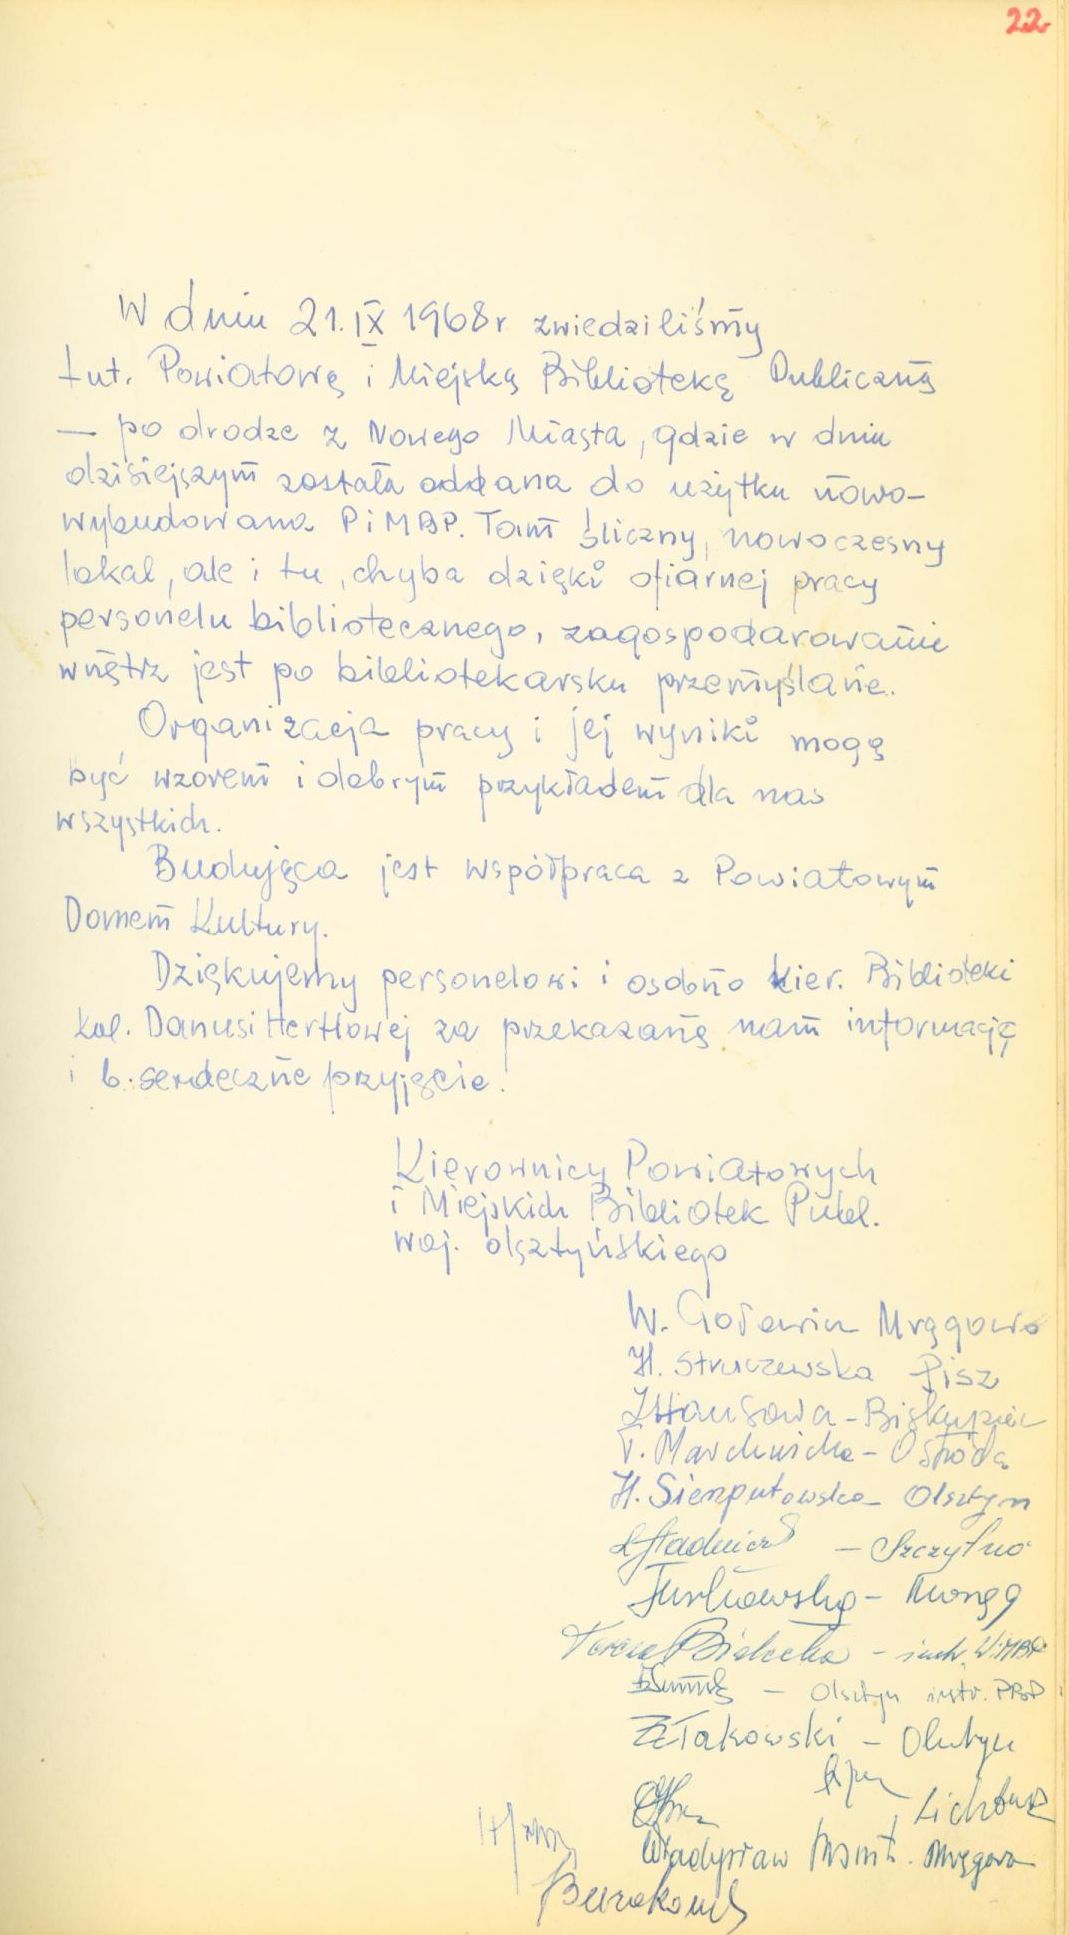 22
W dniu 21. IX 1968 r zwiedziliśmy
tut. Powiatową i Miejską Bibliotekę Publiczną
— po drodze z Nowego Miasta, gdzie w dniu
dzisiejszym została oddana do użytku nowo-
wybudowana PiMBP. Tam śliczny, nowoczesny
lokal, ale i tu, chyba dzięki ofiarnej pracy
personelu bibliotecznego, zagospodarowanie
wnętrz jest po bibliotekarsku przemyślane.
Organizacja pracy i jej wyniki mogą
być wzorem i dobrym przykładem dla nas
wszystkich.
Budująca jest współpraca z Powiatowym
Domem Kultury.
Dziękujemy personelowi i osobno kier. Biblioteki
kol. Danusi Hertlowej za przekazaną nam informację
i b. serdeczne przyjęcie.
Kierownicy Powiatowych
i Miejskich Bibliotek Publ.
woj. olsztyńskiego
W. Goławin Mrągowo
H. Struczewska Pisz
Hausowa - Biskupiec
Ostróda
H. Sienputowska - Olsztyn
— Szczytno
Morąg
Teresa Bielecka -
— Olsztyn instr.
Żłakowski — Olsztyn
Władysław Mrągowo